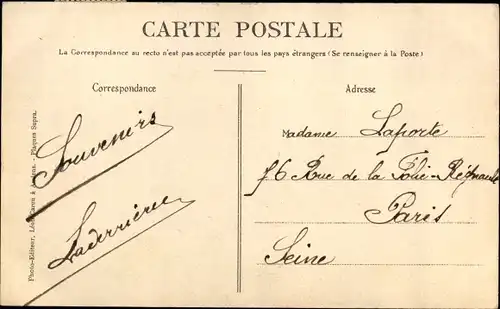 CARTE POSTALE
La Correspondance au recto n'est pas acceptée par tous les pays étrangers (Se renseigner à la Poste)
Correspondance
Souvenirs
Laderrière
Adresse
Madame Laporte
76 Rue de la Folie-Régnault
Paris
Seine
Photo-Editeur, Léon Caron à Amiens. - Plaques Supra.